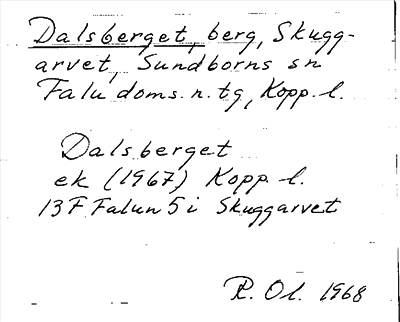 Dalsberget, berg, Skugg-
arvet, Sundborns sn
Falu doms. n. tg, Kopp. l.
Dalsberget
ek (1967) Kopp. l.
13F Falun 5 i Skuggarvet
R. Ol. 1968